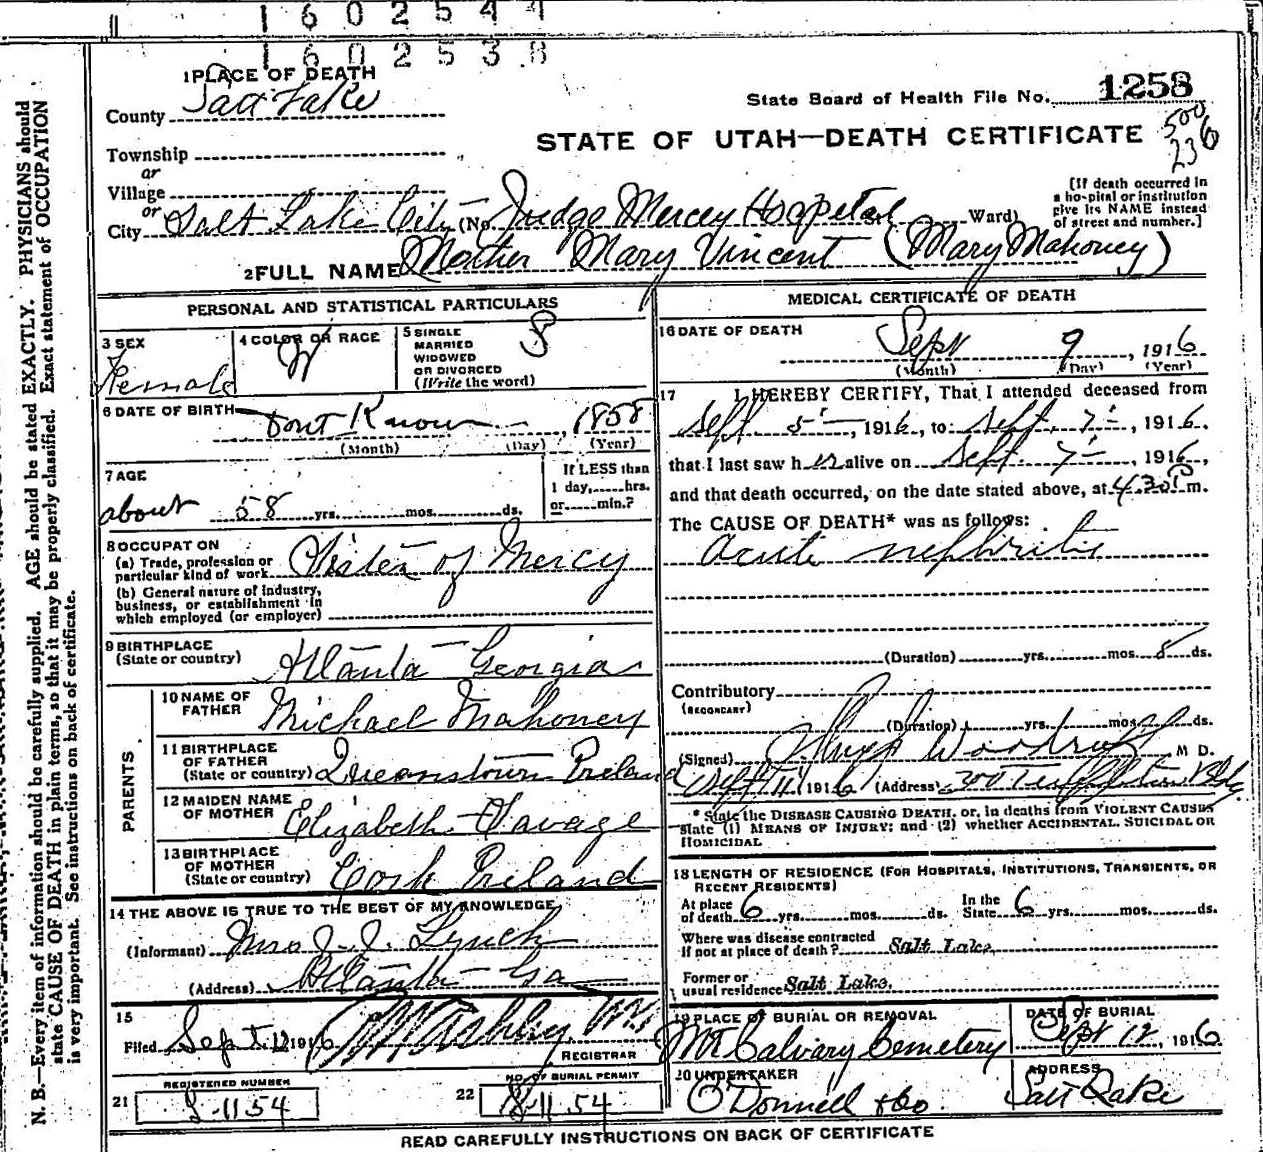 1 6 0 2 5 4 4
1 6 0 2 5 3 8
1 PLACE OF DEATH
County Salt Lake
State Board of Health File No. 1258
500
236
STATE OF UTAH—DEATH CERTIFICATE
Township
or
Village
or
City Salt Lake City (No. Judge Mercey Hospetal Ward)
[If death occurred in
a hospital or institution
give its NAME instead
of street and number.]
2 FULL NAME Mother Mary Vincent (Mary Mahoney)
PERSONAL AND STATISTICAL PARTICULARS
3 SEX
Female
4 COLOR OR RACE
W
5 SINGLE
MARRIED
WIDOWED
OR DIVORCED
(Write the word)
S
6 DATE OF BIRTH Dont Know, 1858
(Month) (Day) (Year)
7 AGE
about 58 yrs. mos. ds.
If LESS than
1 day, hrs.
or min.?
8 OCCUPATION
(a) Trade, profession or
particular kind of work Sister of Mercy
(b) General nature of industry,
business, or establishment in
which employed (or employer)
9 BIRTHPLACE
(State or country) Atlanta Georgia
PARENTS
10 NAME OF
FATHER Michael Mahoney
11 BIRTHPLACE
OF FATHER
(State or country) Queenstown Ireland
12 MAIDEN NAME
OF MOTHER Elizabeth Savage
13 BIRTHPLACE
OF MOTHER
(State or country) Cork Ireland
14 THE ABOVE IS TRUE TO THE BEST OF MY KNOWLEDGE
(Informant) Mrs J. J. Lynch
(Address) Atlanta Ga
15
Filed Sept 12 1916
REGISTRAR
REGISTERED NUMBER
21 S-1154
NO. OF BURIAL PERMIT
22 S-1154
MEDICAL CERTIFICATE OF DEATH
16 DATE OF DEATH
Sept 9, 1916
(Month) (Day) (Year)
17 I HEREBY CERTIFY, That I attended deceased from
Sept. 5-, 1916, to Sept. 7-, 1916.
that I last saw her alive on Sept. 7-, 1916,
and that death occurred, on the date stated above, at 4:30 P m.
The CAUSE OF DEATH* was as follows:
acute nephritis
(Duration) yrs. mos. 8 ds.
Contributory
(SECONDARY)
(Duration) yrs. mos. ds.
(Signed) Woodruff M D.
Sept 11 1916 (Address) 300 Templeton Bldg.
* State the DISEASE CAUSING DEATH, or, in deaths from VIOLENT CAUSES
state (1) MEANS OF INJURY; and (2) whether ACCIDENTAL, SUICIDAL OR
HOMICIDAL
18 LENGTH OF RESIDENCE (FOR HOSPITALS, INSTITUTIONS, TRANSIENTS, OR
RECENT RESIDENTS)
At place
of death 6 yrs. mos. ds. In the
State 6 yrs. mos. ds.
Where was disease contracted
if not at place of death? Salt Lake
Former or
usual residence Salt Lake.
19 PLACE OF BURIAL OR REMOVAL
Mt Calvary Cemetery
DATE OF BURIAL
Sept 12, 1916
20 UNDERTAKER
O'Donnell & Co.
ADDRESS
Salt Lake
READ CAREFULLY INSTRUCTIONS ON BACK OF CERTIFICATE
N. B.—Every item of information should be carefully supplied. AGE should be stated EXACTLY. PHYSICIANS should
state CAUSE OF DEATH in plain terms, so that it may be properly classified. Exact statement of OCCUPATION
is very important. See instructions on back of certificate.